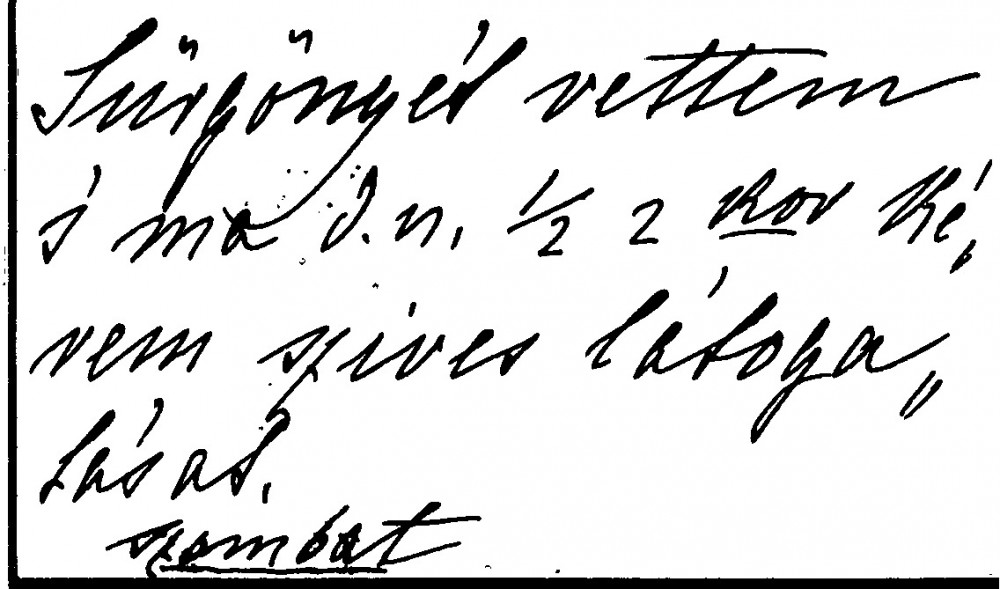 Sürgönyét vettem
s ma d.n. 1/2 2 kor ké,
rem szives látoga„
tását.
szombat